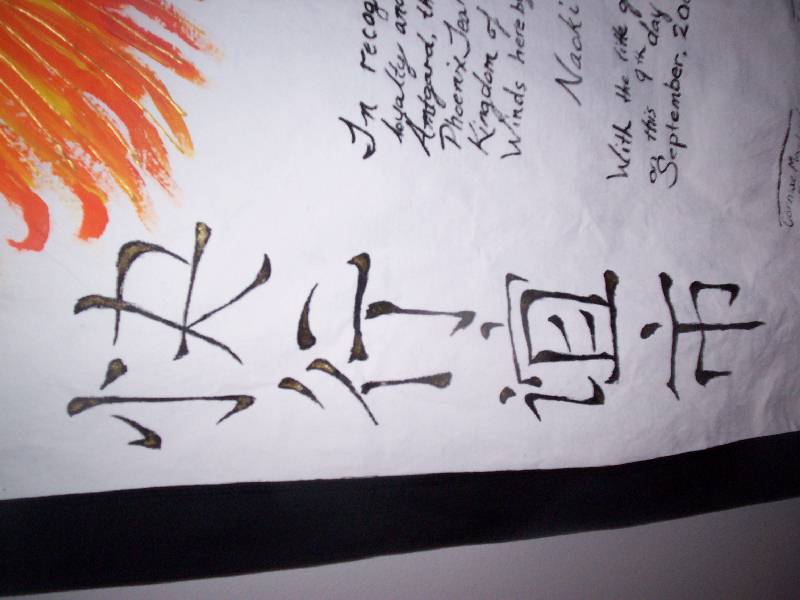 快
行
谊
市
In recog
loyalty and
Amtgard, th
Phoenix Tear
Kingdom of
Winds here by
Naoki
With the title o
on this 9th day
September, 200